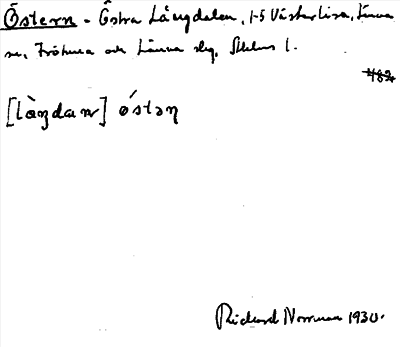 Östern - Östra Långdalen, 1-5 Västerlisa, Länna
sn, Frötuna och Länna slg. Sthlms l.
482
[làŋdaɴ] óstəŋ
Richard Norrman 1930.